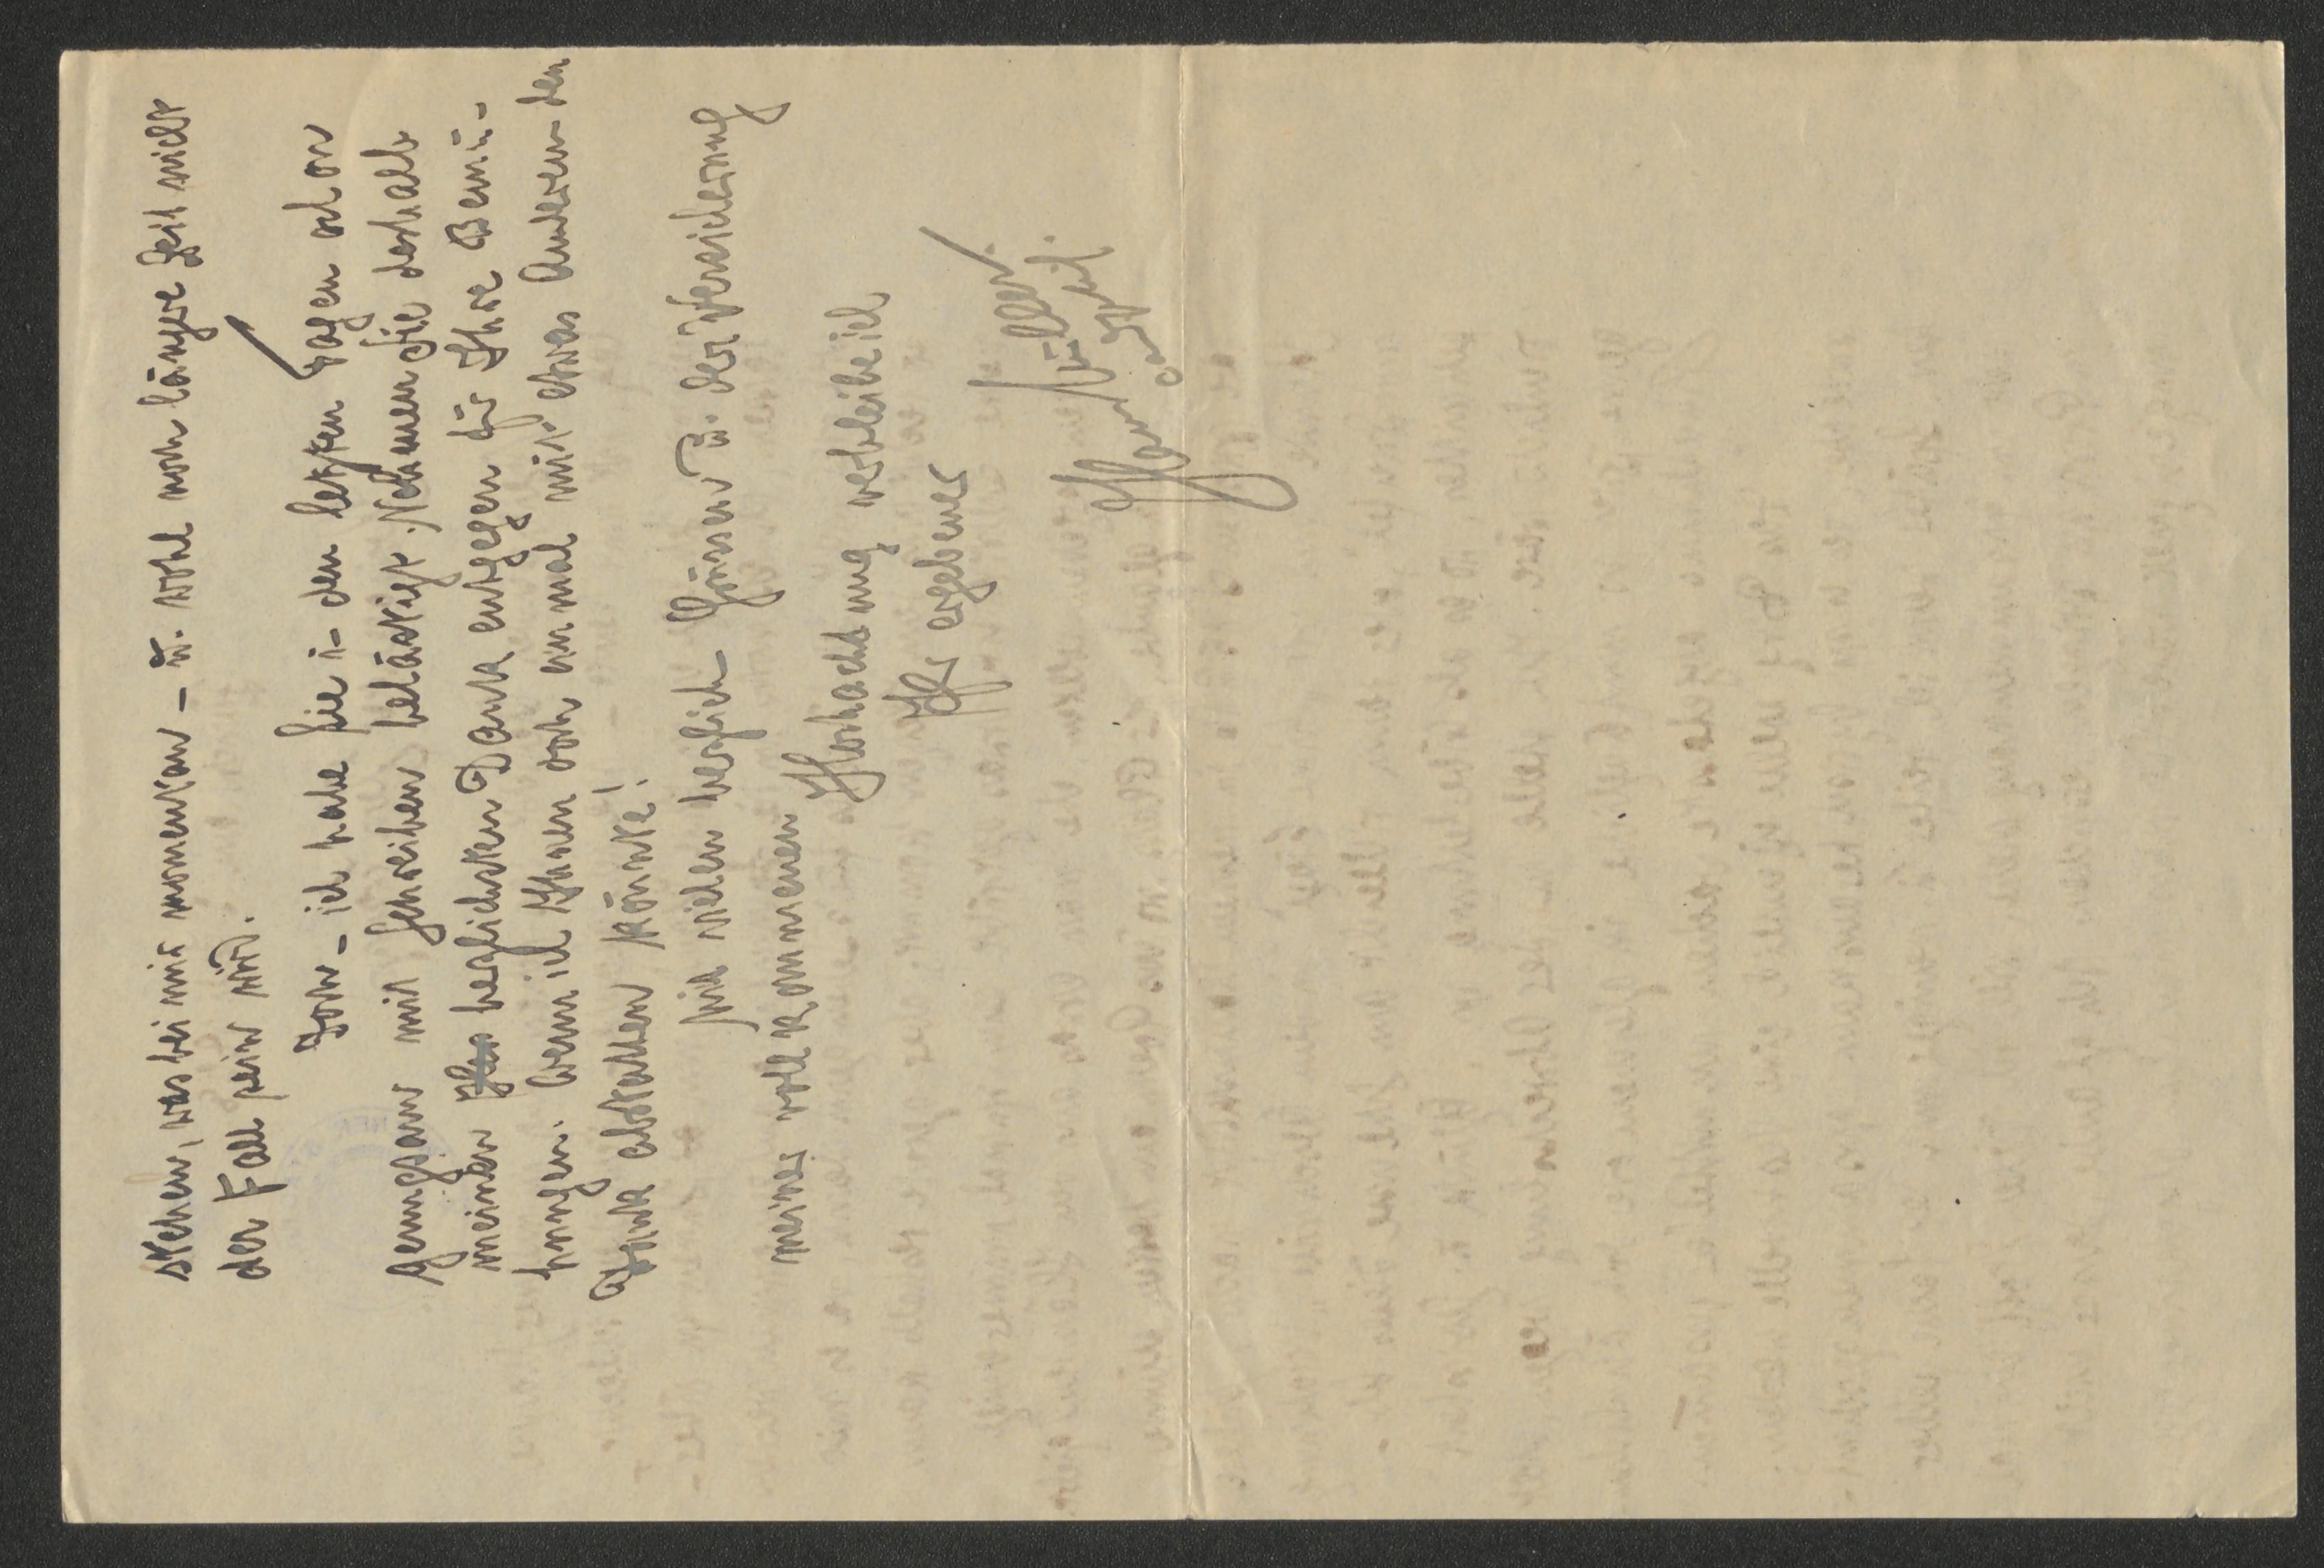 stehen, was bei mir momentan – u. wohl noch längere Zeit nicht
der Fall sein wird.
Doch – ich habe Sie in den letzten Tagen schon
genugsam mit Schreiben belästigt. Nehmen Sie deshalb
meinen herzlichsten Dank entgegen für Ihre Bemü-
hungen. Wenn ich Ihnen doch einmal mit etwas Anderem den
Dank abstatten könnte!
Mit vielen herzlich Grüssen u. der Versicherung
meiner vollkommenen
Hochachtung verbleibe ich
Ihr ergebener